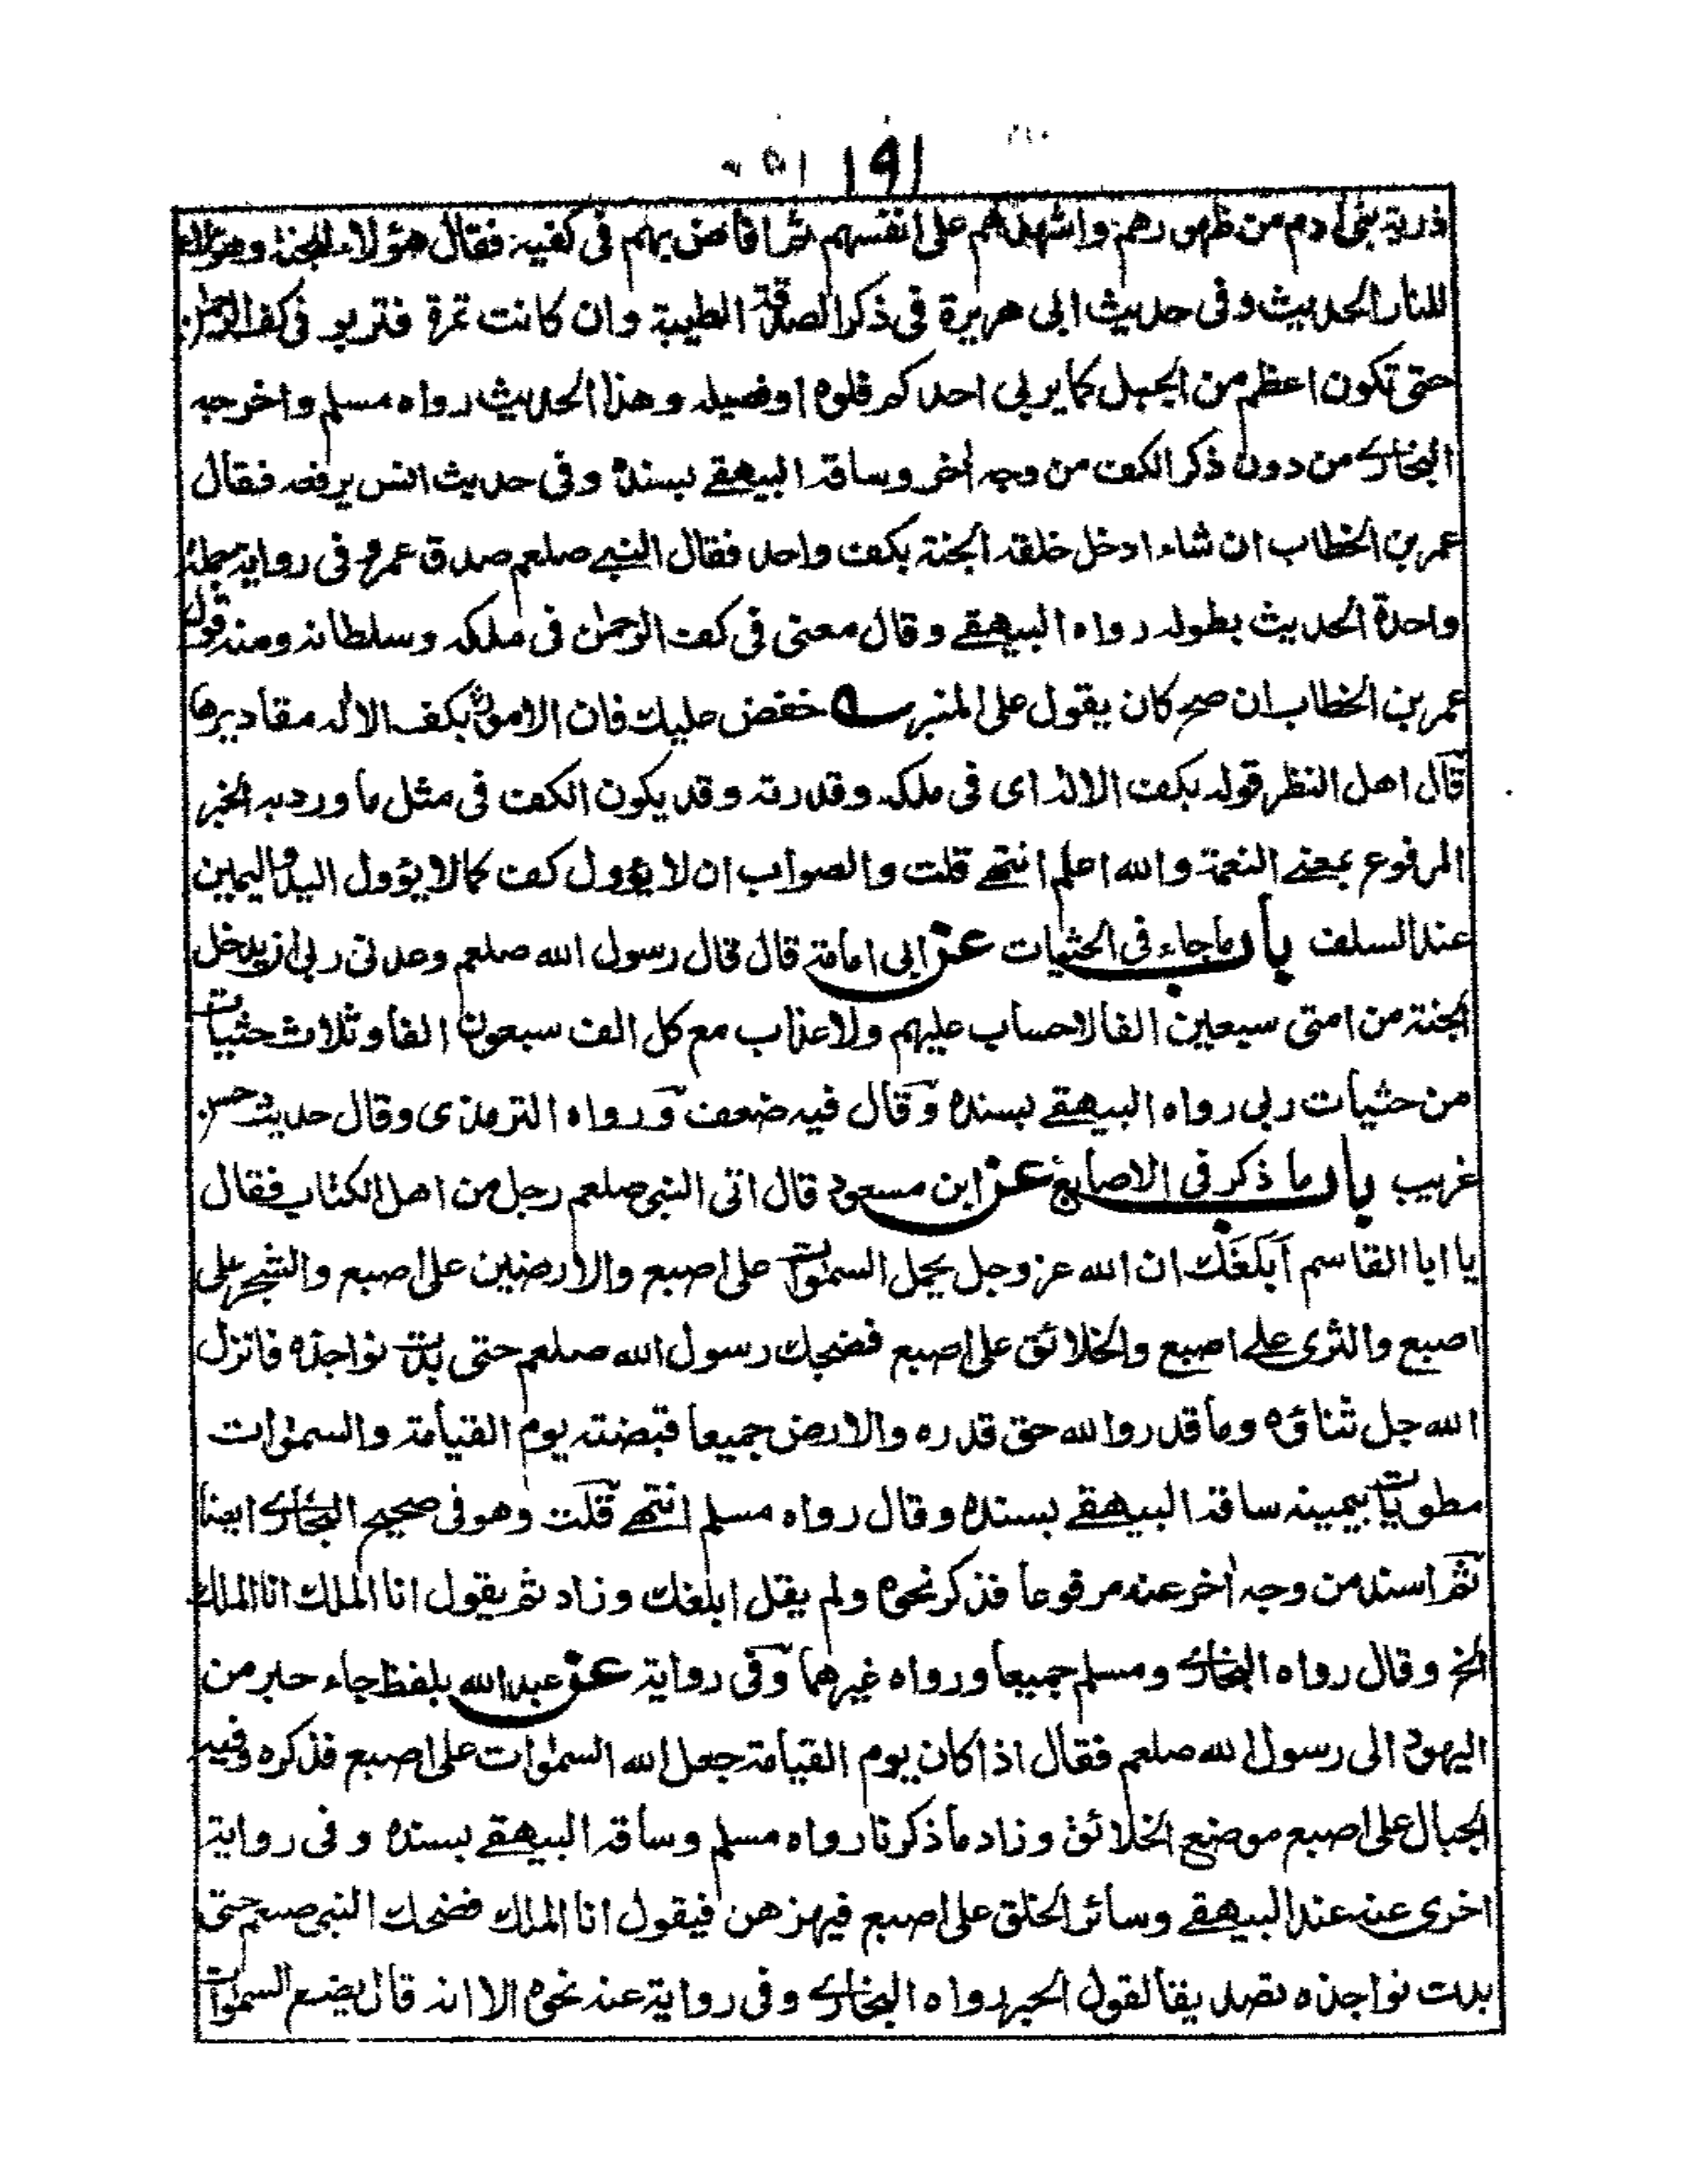 ١٩١
ذرية بنى ادم من ظهورهم واشهدهم على انفسهم ثم افاض بهم فى كفيه فقال هؤلاء للجنة وهؤلاء
للنار الحديث وفى حديث ابى هريرة فى ذكر الصدقة الطيبة وان كانت تمرة فتربو فى كف الرحمن
حتى تكون اعظم من الجبل كما يربى احدكم فلوه او فصيله وهذا الحديث رواه مسلم واخرجه
البخارى من دون ذكر الكف من وجه اٰخر وساقه البيهقى بسنده وفى حديث انس يرفعه فقال
عمر بن الخطاب ان شاء ادخل خلقه الجنة بكف واحد فقال النبى صلعم صدق عمر وفى رواية بحملة
واحدة الحديث بطوله رواه البيهقى وقال معنى فى كف الرحمٰن فى ملكه وسلطانه ومنه قول
عمر بن الخطاب ان صح كان يقول على المنبر ؎ خفض عليك فان الامور بكف الاله مقاديرها
قال اهل النظر قوله بكف الاله اى فى ملكه وقدرته وقد يكون الكف فى مثل ما ورد به الخبر
المرفوع بمعنى النعمة والله اعلم انتهى قلت والصواب ان لا يؤول كف كما لا يؤول اليد واليمين
عند السلف باب ما جاء فى الحثيات عن ابى امامة قال قال رسول الله صلعم وعدنى ربى ان يدخل
الجنة من امتى سبعين الفا لا حساب عليهم ولا عذاب مع كل الف سبعون الفا وثلاث حثيات
من حثيات ربى رواه البيهقى بسنده وقال فيه ضعف ورواه الترمذى وقال حديث حسن
غريب باب ما ذكر فى الاصابع عن ابن مسعود قال اتى النبى صلعم رجل من اهل الكتاب فقال
يا ابا القاسم اَبَلَغَكَ ان الله عز وجل يحمل السمٰوات على اصبع والارضين على اصبع والشجر على
اصبع والثرى على اصبع والخلائق على اصبع فضحك رسول الله صلعم حتى بدت نواجذه فانزل
الله جل ثناؤه وما قدروا لله حق قدره والارض جميعا قبضته يوم القيامة والسمٰوات
مطويات بيمينه ساقه البيهقى بسنده وقال رواه مسلم انتهى قلت وهو فى صحيح البخارى ايضا
ثم اسند من وجه اٰخر عنه مرفوعا فذكر نحوه ولم يقل ابلغك وزاد ثم يقول انا الملك انا الملك
الخ وقال رواه البخارى ومسلم جميعا ورواه غيرهما وفى رواية عن عبد الله بلفظ جاء حبر من
اليهود الى رسول الله صلعم فقال اذا كان يوم القيامة جعل الله السمٰوات على اصبع فذكره وفيه
الجبال على اصبع موضع الخلائق وزاد ما ذكرنا رواه مسلم وساقه البيهقى بسنده وفى رواية
اخرى عنه عند البيهقى وسائر الخلق على اصبع فيهزهن فيقول انا الملك فضحك النبى صلعم حتى
بدت نواجذه تصديقا لقول الحبر رواه البخارى وفى رواية عنه نحوه الا انه قال يضع السمٰوات